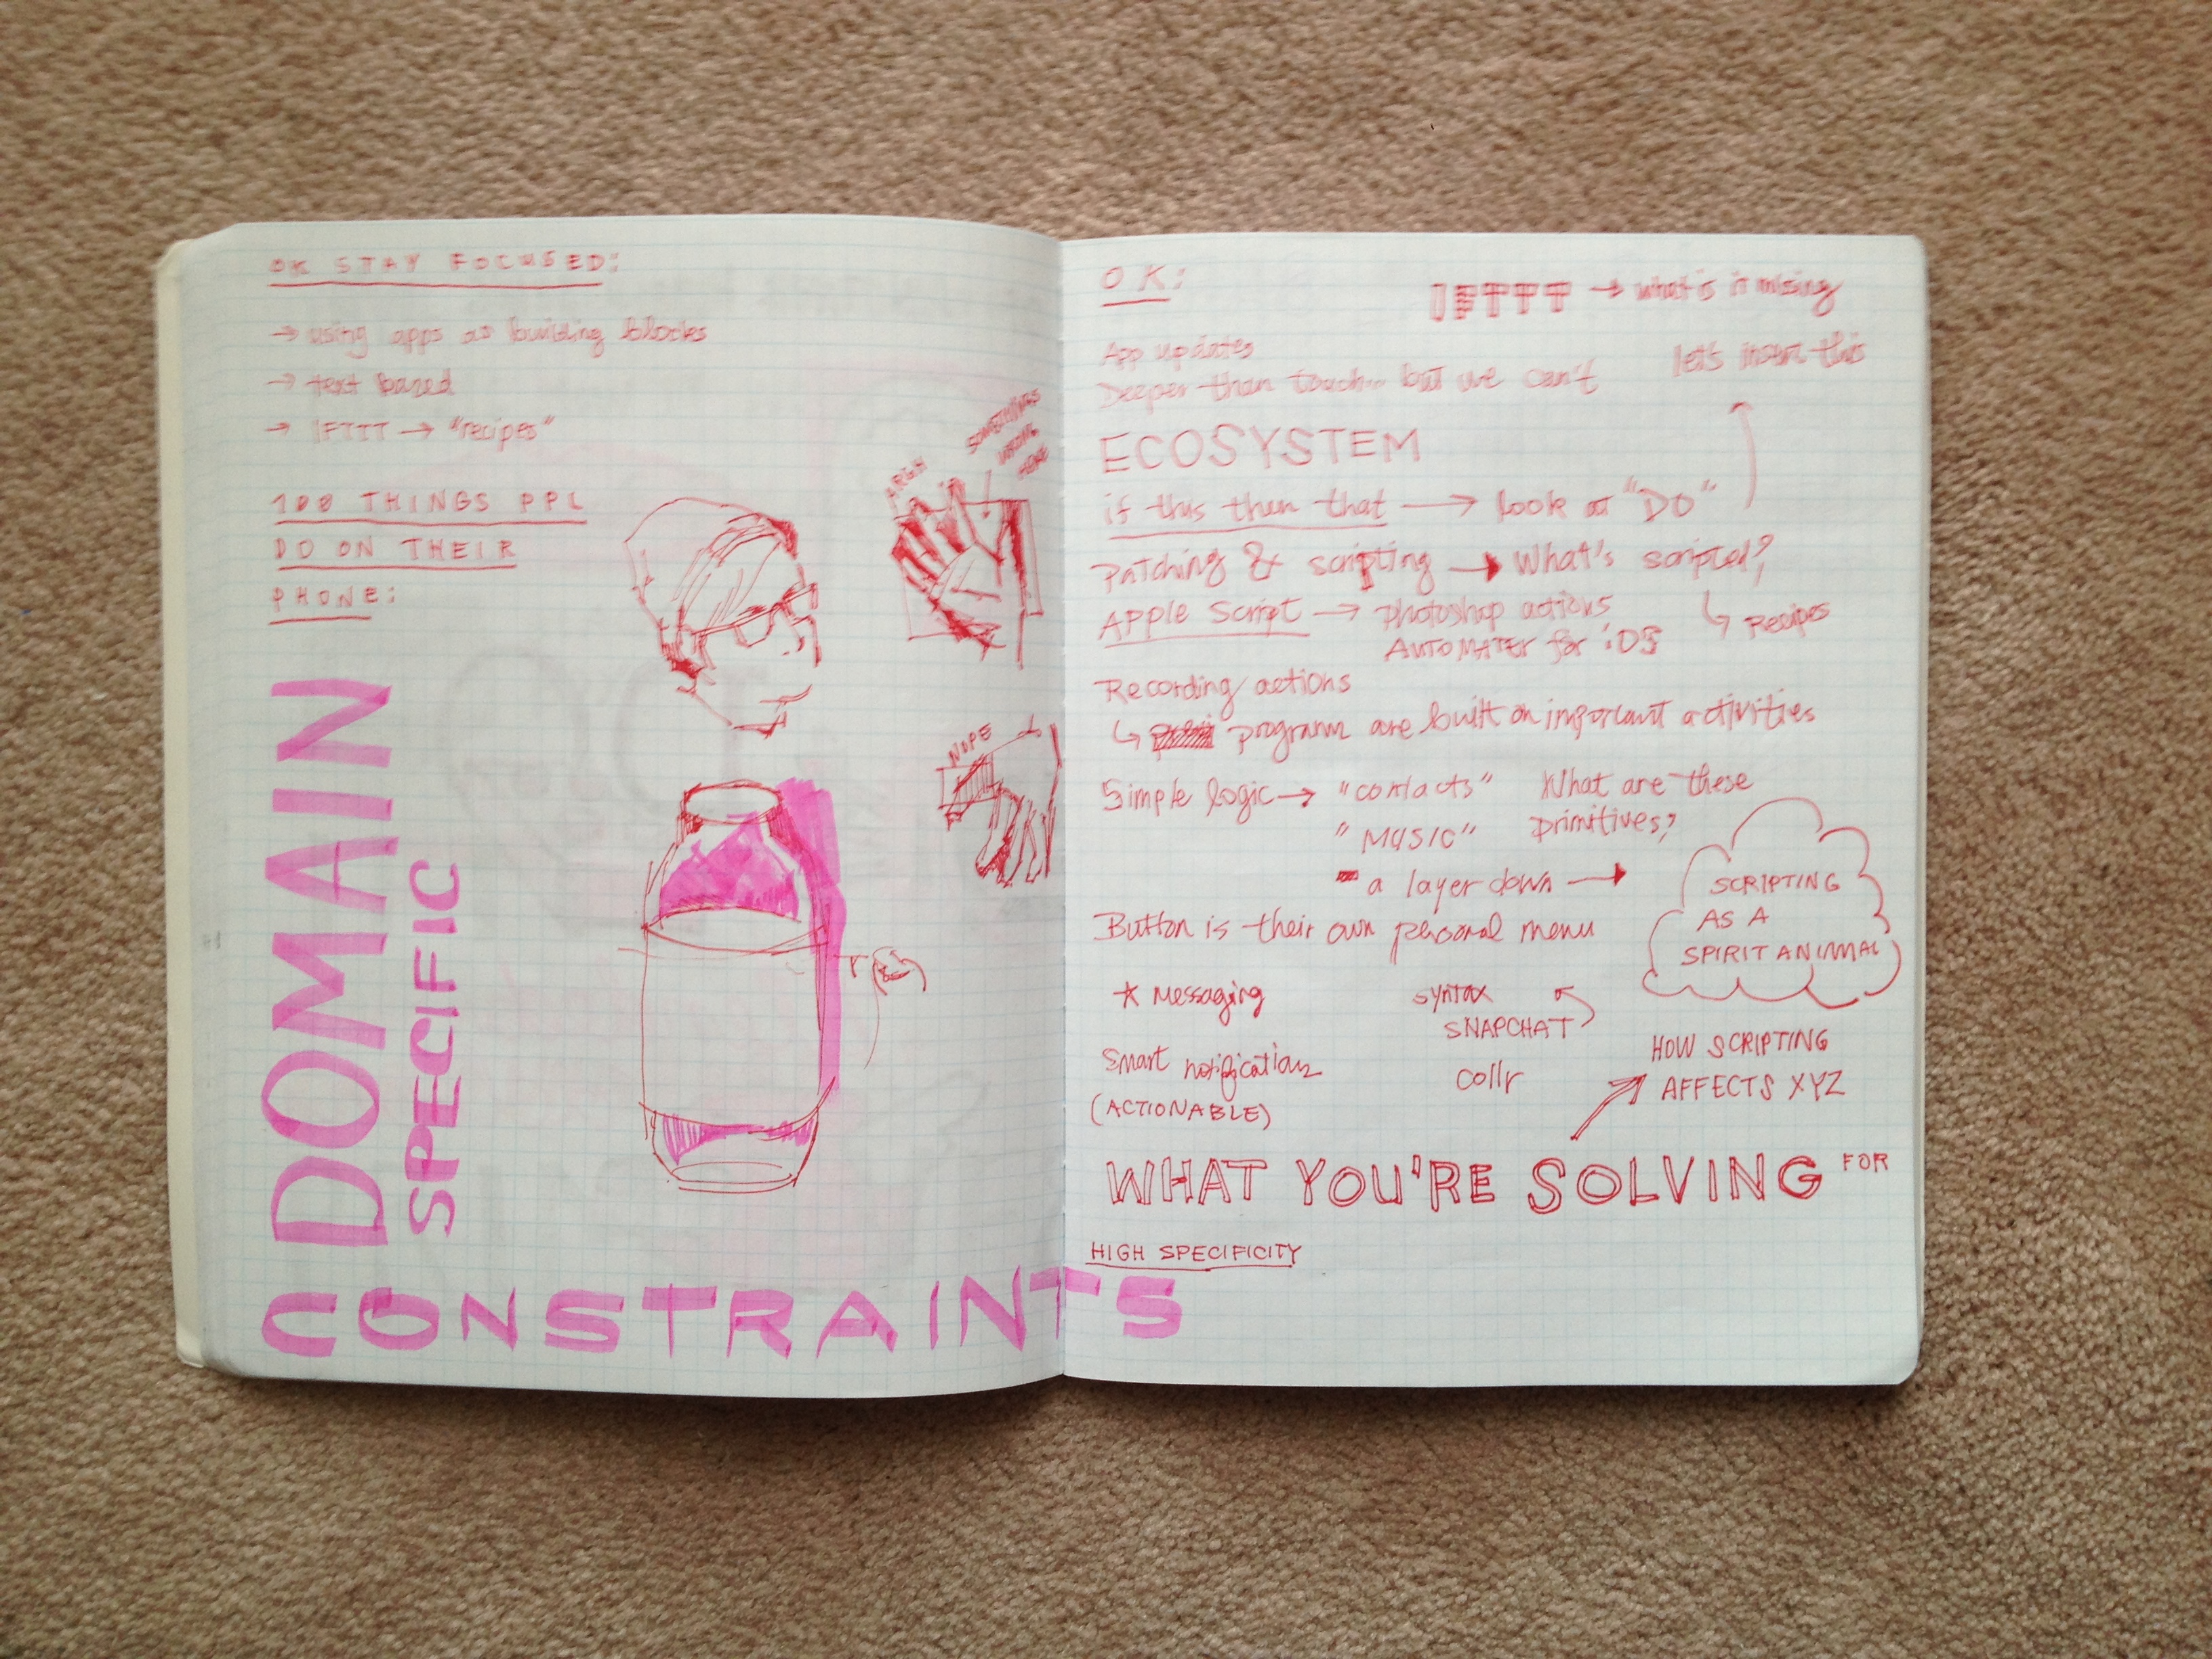 OK STAY FOCUSED:
→ using apps as building blocks
→ text based
→ IFTTT → "recipes"
100 THINGS PPL
DO ON THEIR
PHONE:
ARGH
SOMETHING'S
WRONG
HERE
NOPE
DOMAIN
SPECIFIC
CONSTRAINTS
OK:
IFTTT → what is it missing
let's insert this
App updates
Deeper than touch... but we can't
ECOSYSTEM
if this then that → look at "DO"
Patching & scripting → What's scripted?
↳ Recipes
Apple Script → photoshop actions
AUTOMATER for iOS
Recording actions
↳ programs are built on important activities
Simple logic → "contacts"
"MUSIC"
a layer down →
What are these
primitives?
SCRIPTING
AS A
SPIRIT ANIMAL
Button is their own personal menu
☆ Messaging
syntax
SNAPCHAT
Smart notifications
(ACTIONABLE)
collr
HOW SCRIPTING
AFFECTS XYZ
WHAT YOU'RE SOLVING FOR
HIGH SPECIFICITY